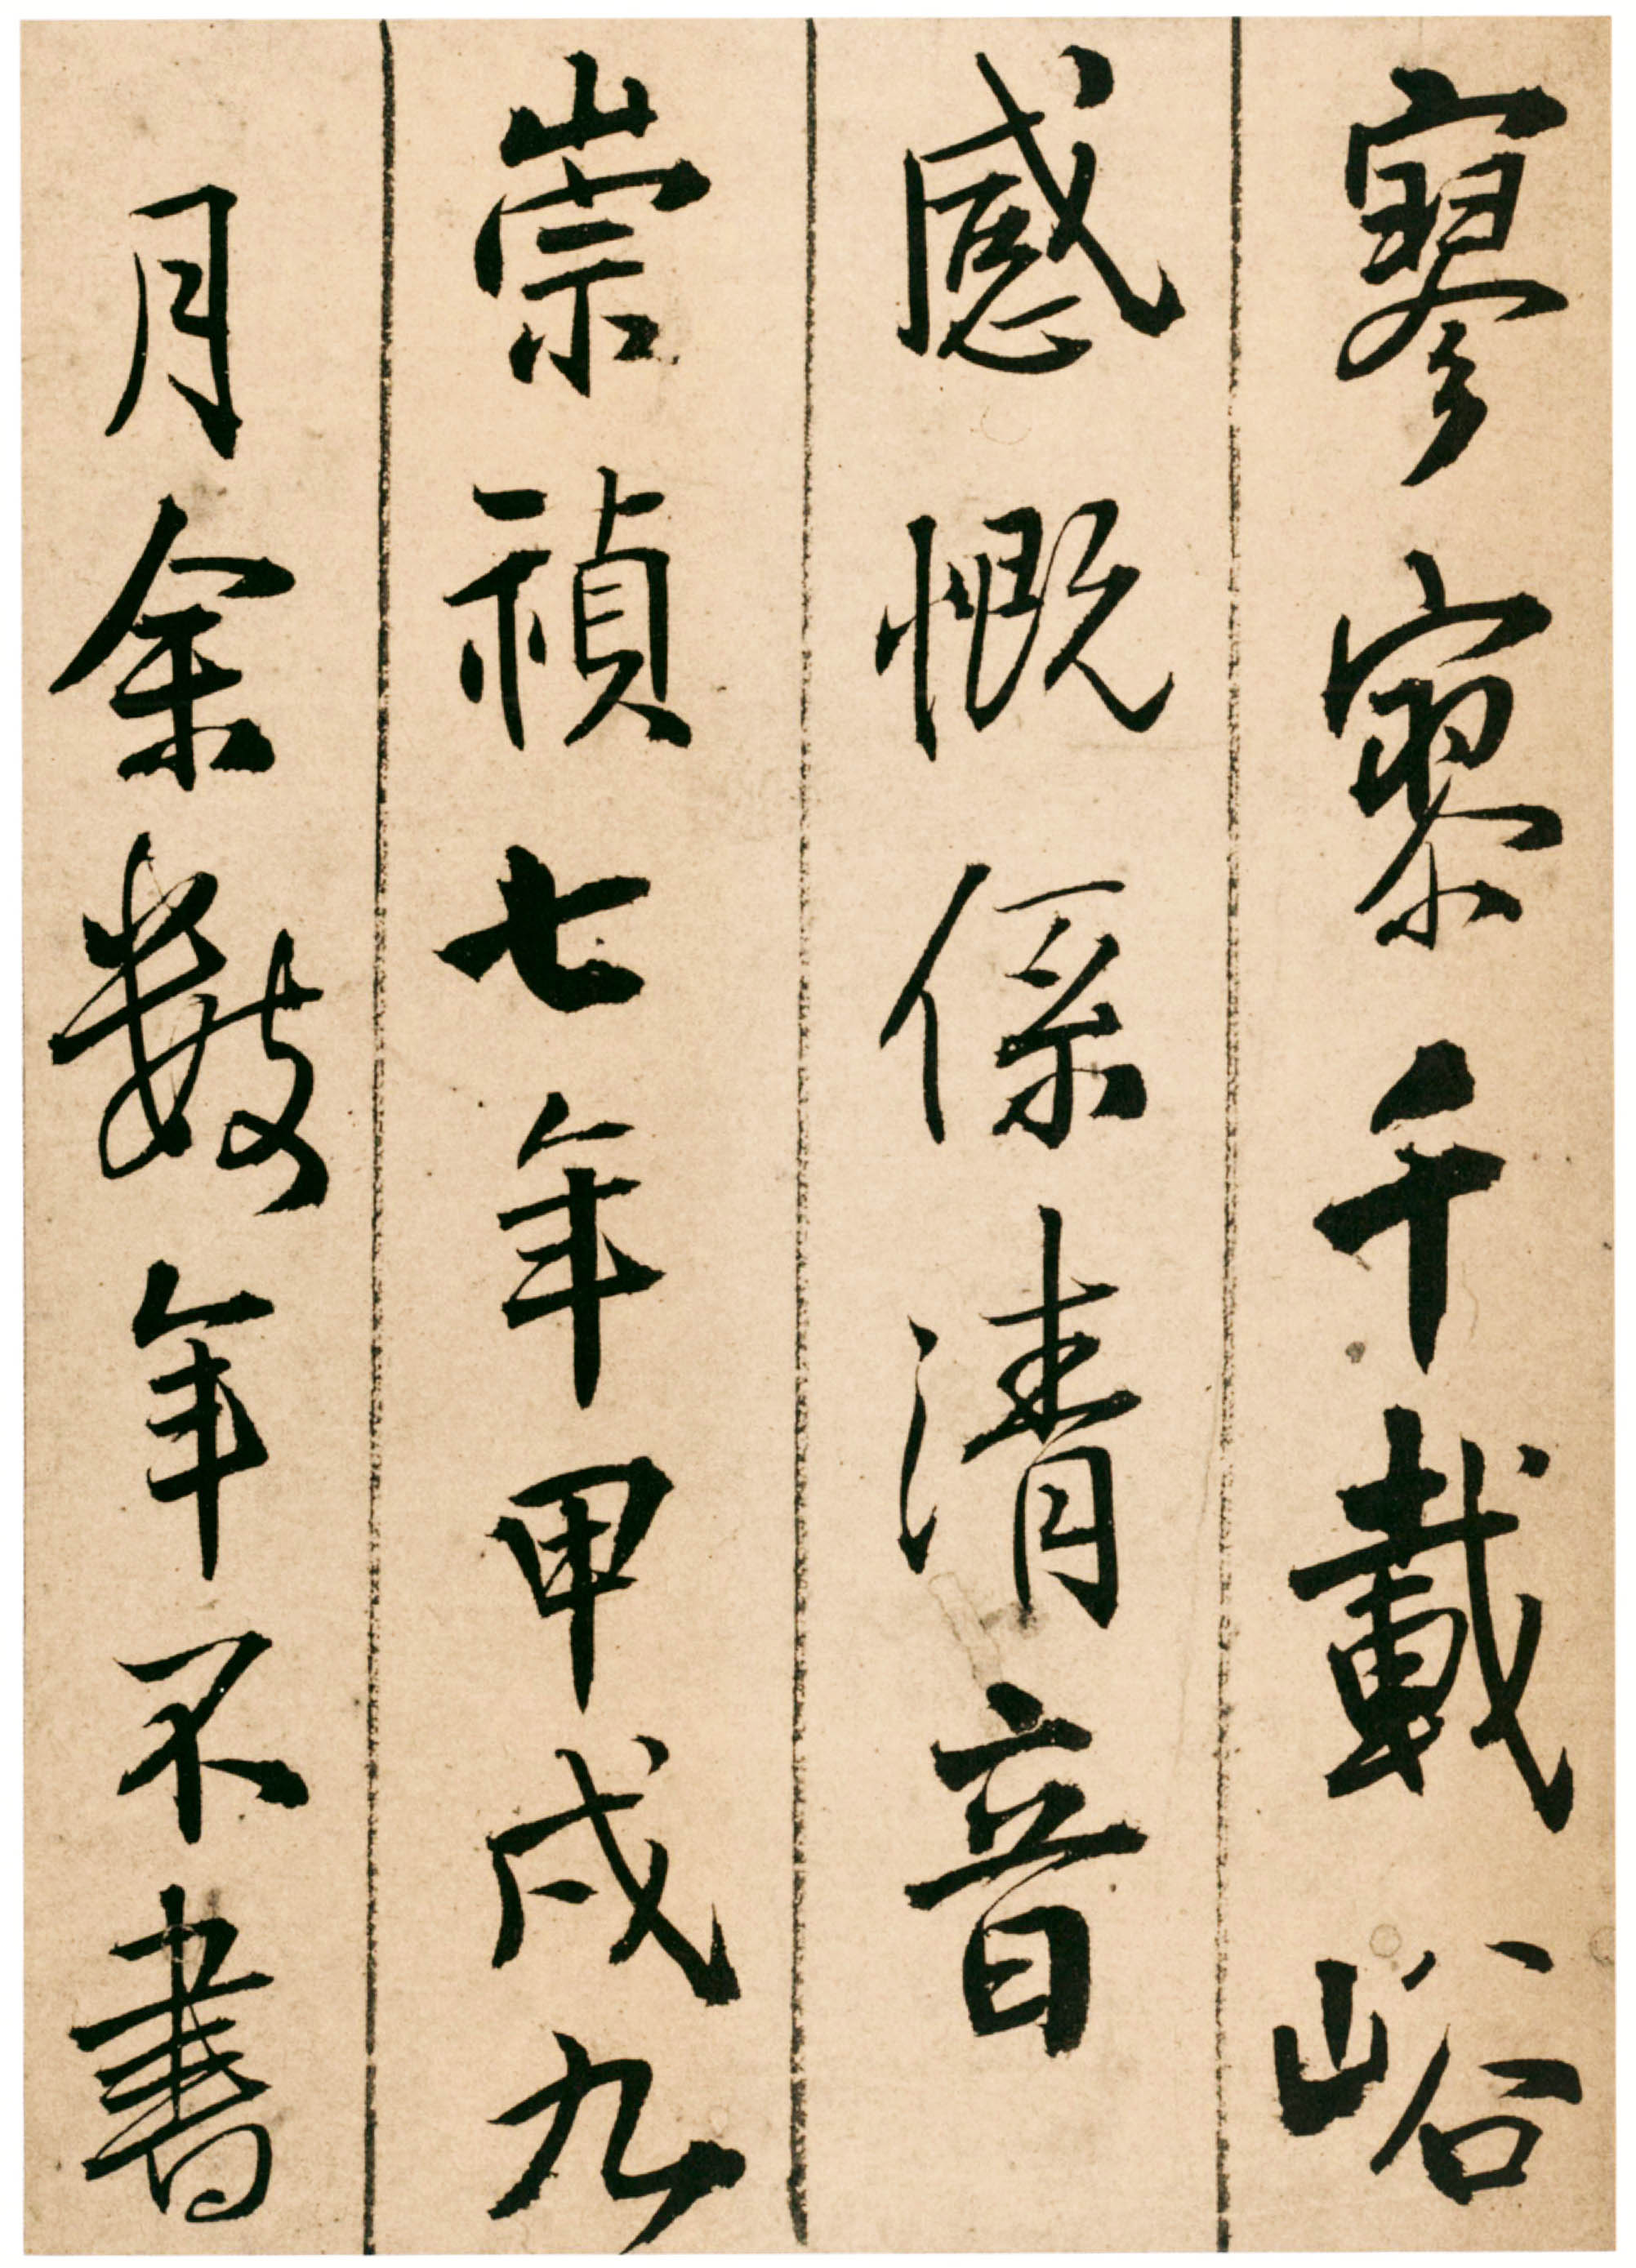 寥寥千載峪
感慨係清音
崇禎七年甲戌九
月余數年不書